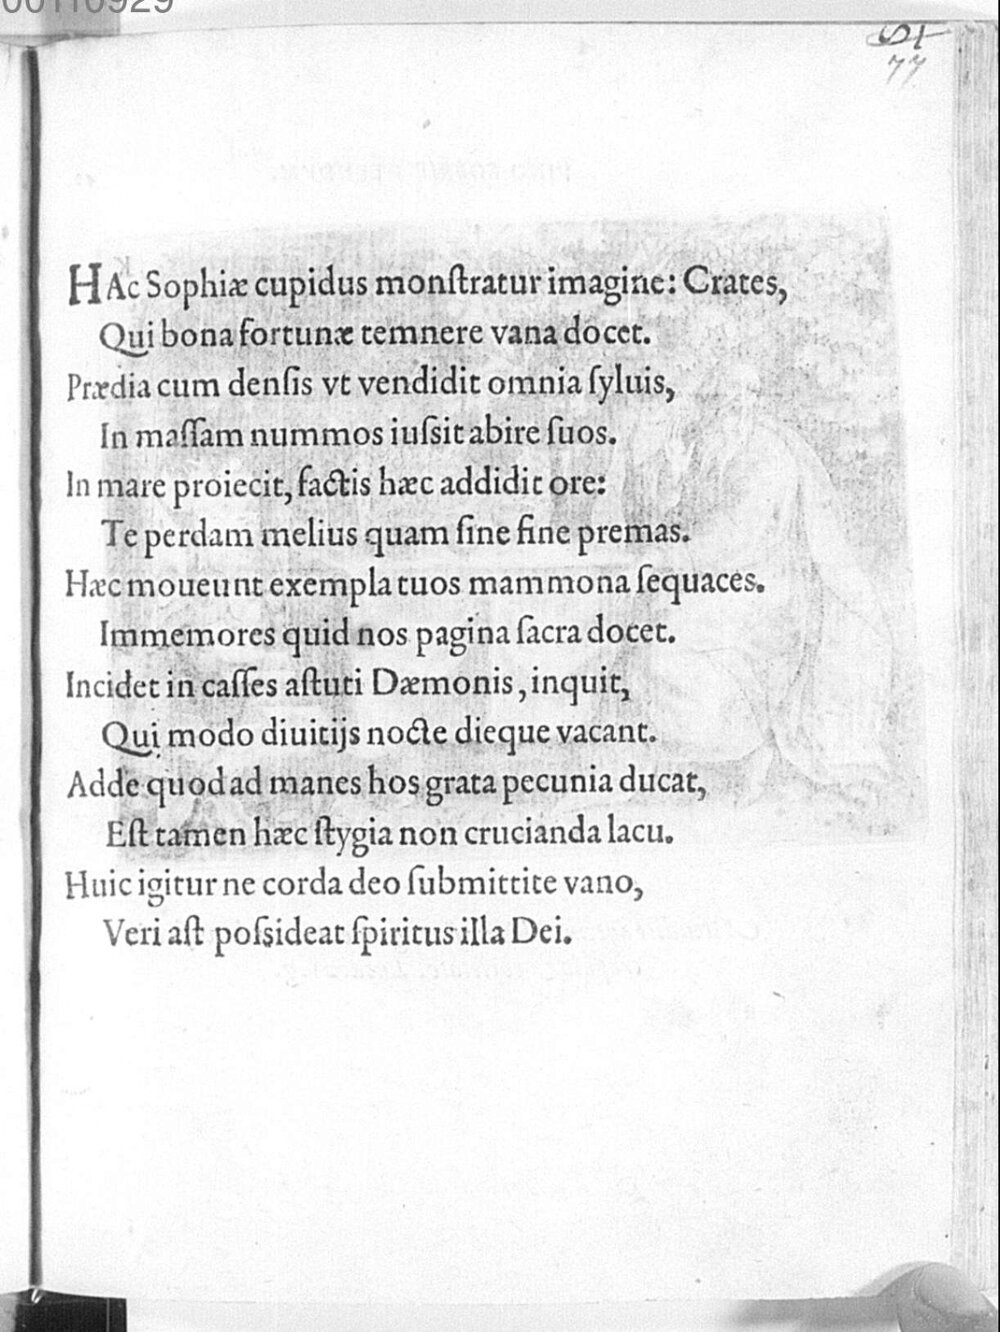 00110929
77
HAc Sophiæ cupidus monſtratur imagine: Crates,
Qui bona fortunæ temnere vana docet.
Prædia cum denſis vt vendidit omnia ſyluis,
In maſſam nummos iuſsit abire ſuos.
In mare proiecit, factis hæc addidit ore:
Te perdam melius quam ſine fine premas.
Hæc moueunt exempla tuos mammona ſequaces.
Immemores quid nos pagina ſacra docet.
Incidet in caſſes aſtuti Dæmonis, inquit,
Qui modo diuitijs nocte dieque vacant.
Adde quod ad manes hos grata pecunia ducat,
Eſt tamen hæc ſtygia non crucianda lacu.
Huic igitur ne corda deo ſubmittite vano,
Veri aſt poſsideat ſpiritus illa Dei.